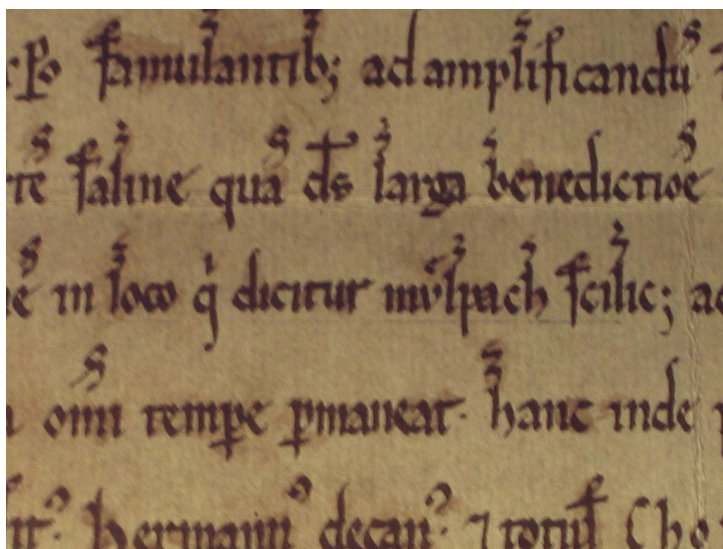 xp̄o famulantib; ad amplificandū
rtē saline quā d̄s larga benedictiōe
nē in loco q̇ dicitur mvͦlpach scilic; ad
a om̄i temꝑe ꝑmaneat. hanc inde
it⁹. hermann⁹ decan⁹. ⁊ totuſ Cho